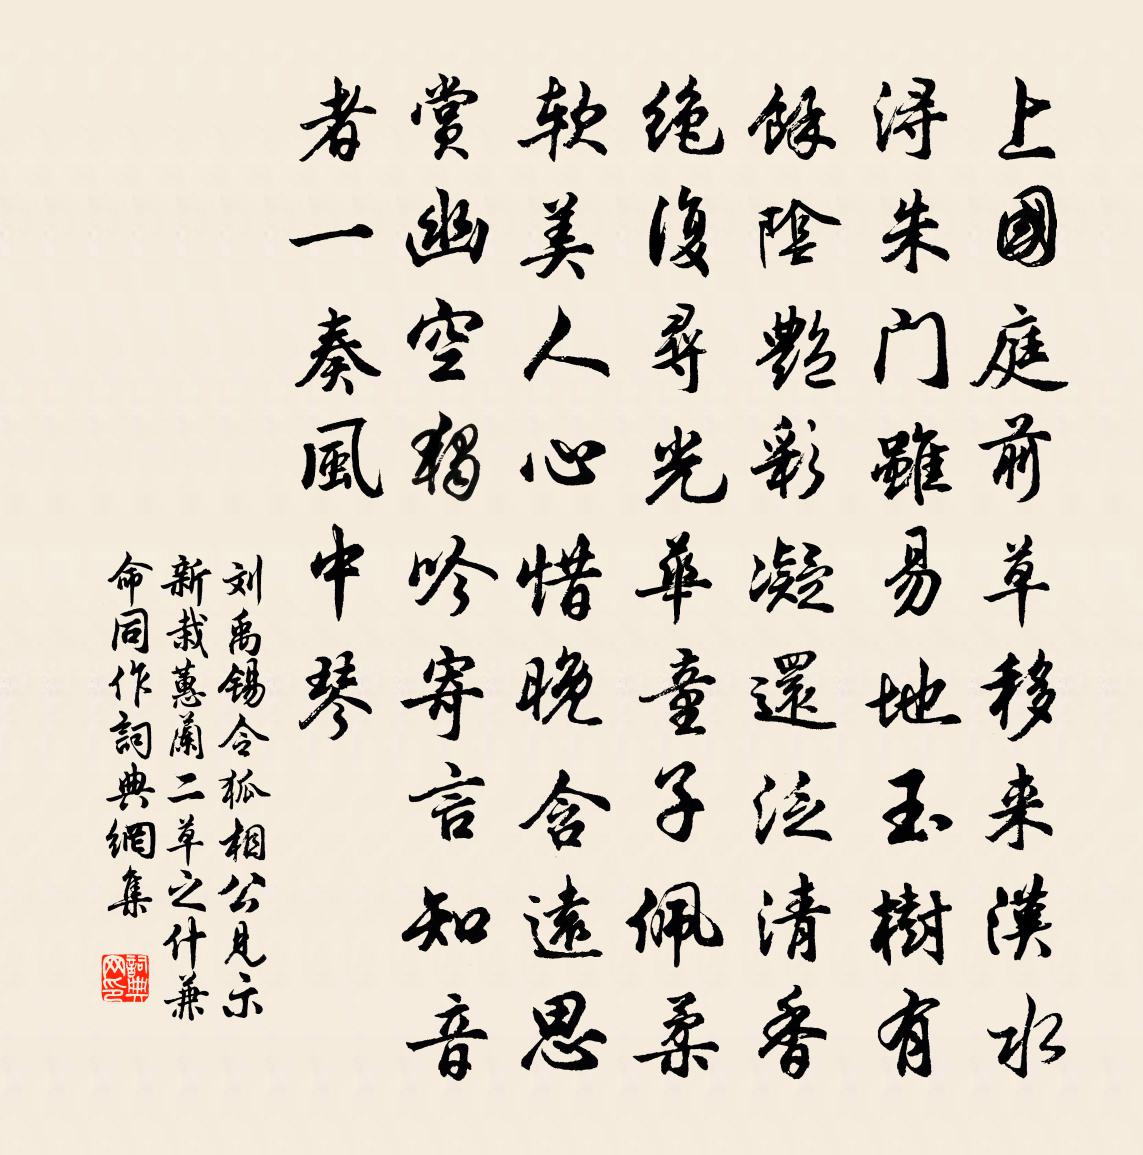 上國庭前草移来漢水
浔朱门雖易地玉樹有
餘陰艷彩凝還泛清香
绝復尋光華童子佩柔
软美人心惜晚含遠思
赏幽空獨吟寄言知音
者一奏風中琴
刘禹锡令狐相公見示
新栽蕙蘭二草之什兼
命同作詞典網集
詞典网印